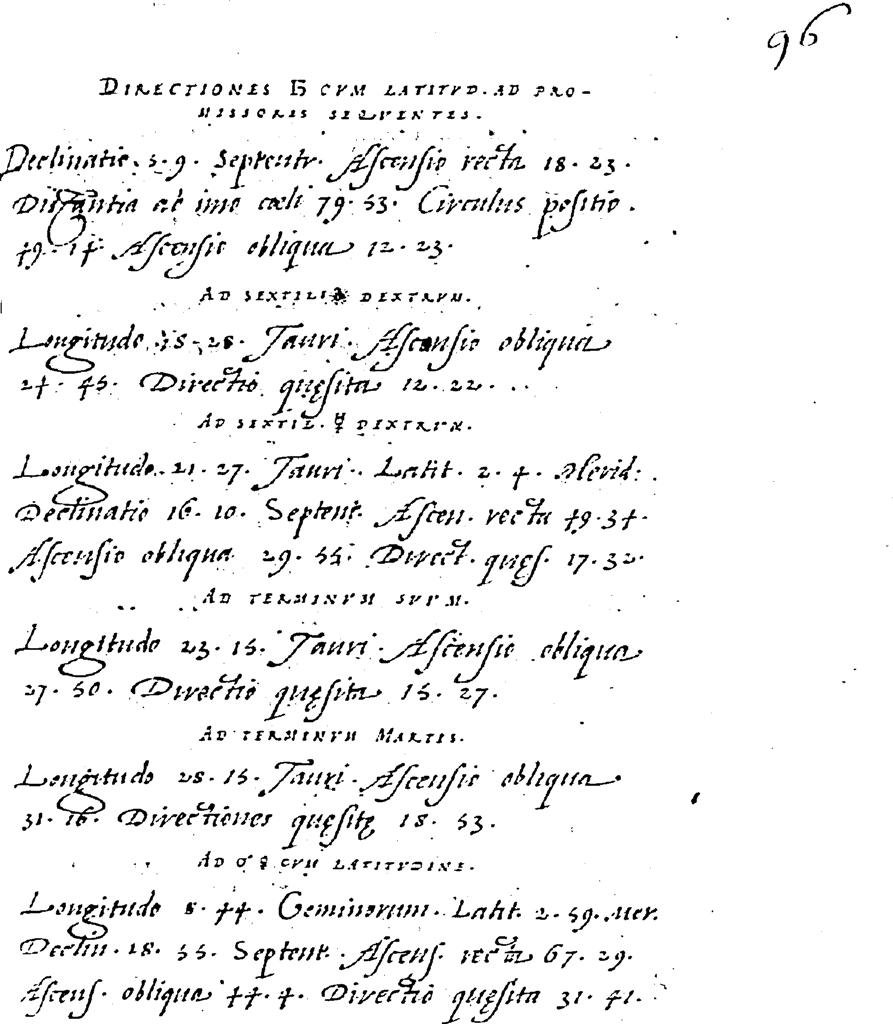 96
DIRECTIONES ♄ CVM LATITVD. AD PRO-
MISSORES SEQVENTES.
Declinatio. 5. 9. Septentr. Ascensio recta 18. 23.
Distantia ab imo cœli 79. 53. Circulus positio.
49. 14. Ascensio obliqua 12. 23.
AD SEXTILE DEXTRVM.
Longitudo 18. 28. Tauri. Ascensio obliqua
24. 45. Directio quęsita 12. 22.
AD SEXTIL. ☿ DEXTRVM.
Longitudo. 21. 27. Tauri. Latit. 2. 4. Merid:
Declinatio 16. 10. Septent. Ascen. recta 49. 34.
Ascensio obliqua 29. 55. Direct. quęs. 17. 32.
AD TERMINVM SVVM.
Longitudo 23. 15. Tauri. Ascensio obliqua
27. 50. Directio quęsita 15. 27.
AD TERMINVM MARTIS.
Longitudo 28. 15. Tauri. Ascensio obliqua
31. 16. Directiones quęsitę 18. 53.
AD ☌ ♀ CVM LATITVDINE.
Longitudo 8. 44. Geminorum. Latit. 2. 59. Mer.
Declin. 18. 55. Septent. Ascens. recta 67. 29.
Ascens. obliqua 44. 4. Directio quęsita 31. 41.